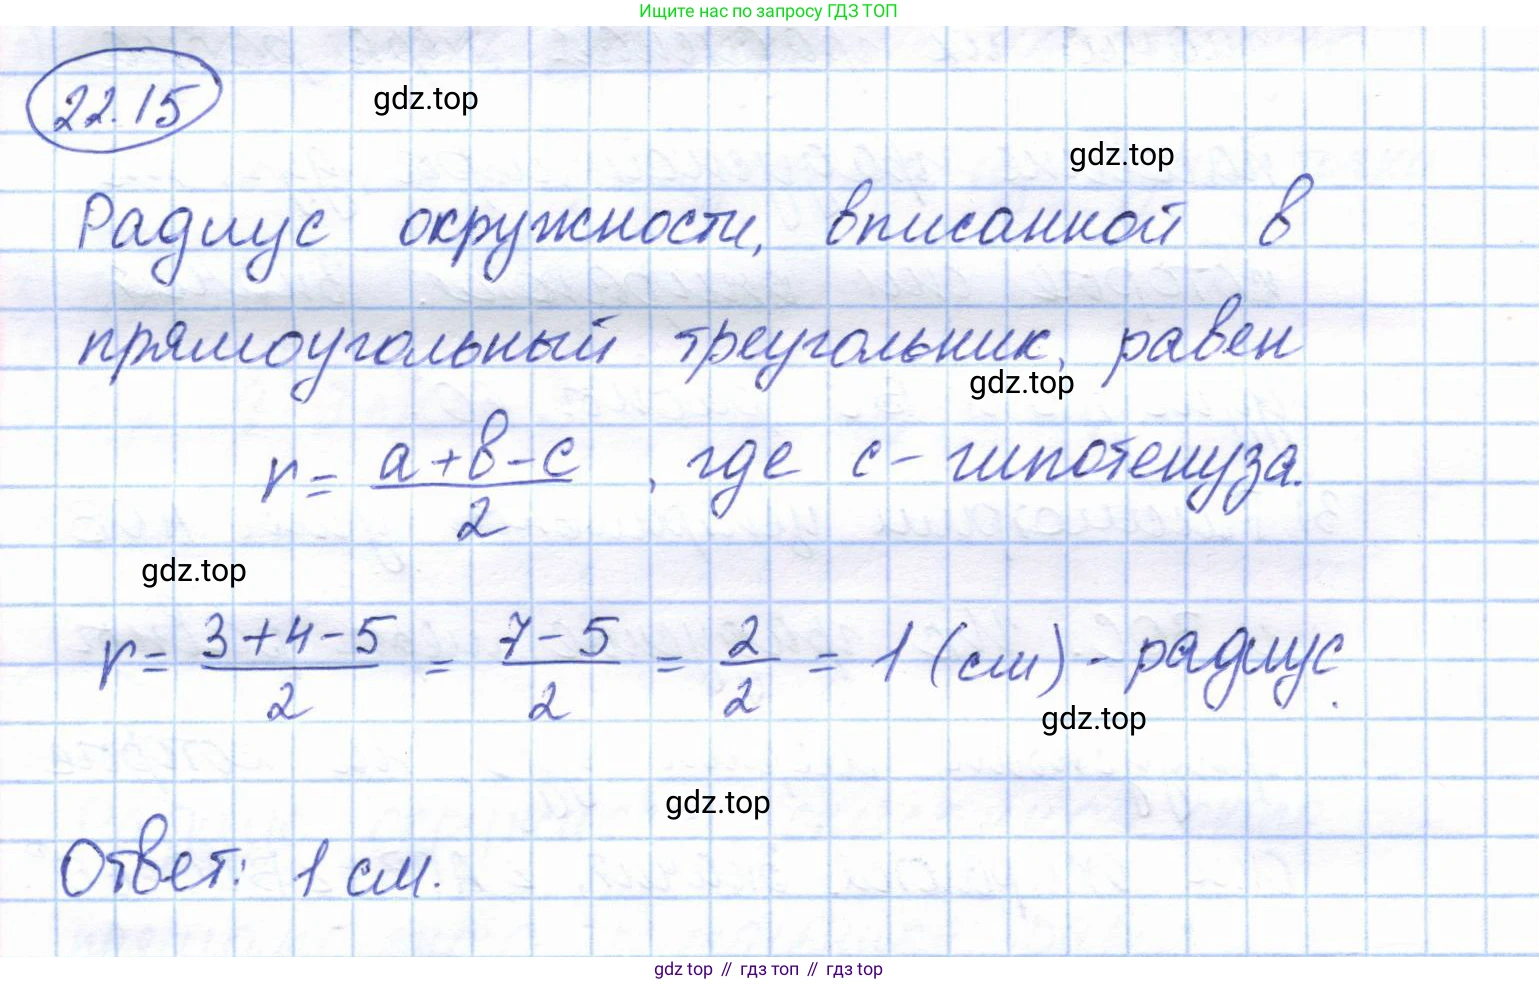 Ищите нас по запросу ГДЗ ТОП
22.15
gdz.top
gdz.top
Радиус окружности, вписанной в
прямоугольный треугольник, равен
gdz.top
r = (a+b-c)/2, где c - гипотенуза.
gdz.top
r = (3+4-5)/2 = (7-5)/2 = 2/2 = 1 (см) - радиус.
gdz.top
gdz.top
Ответ: 1 см.
gdz top // гдз топ // гдз top